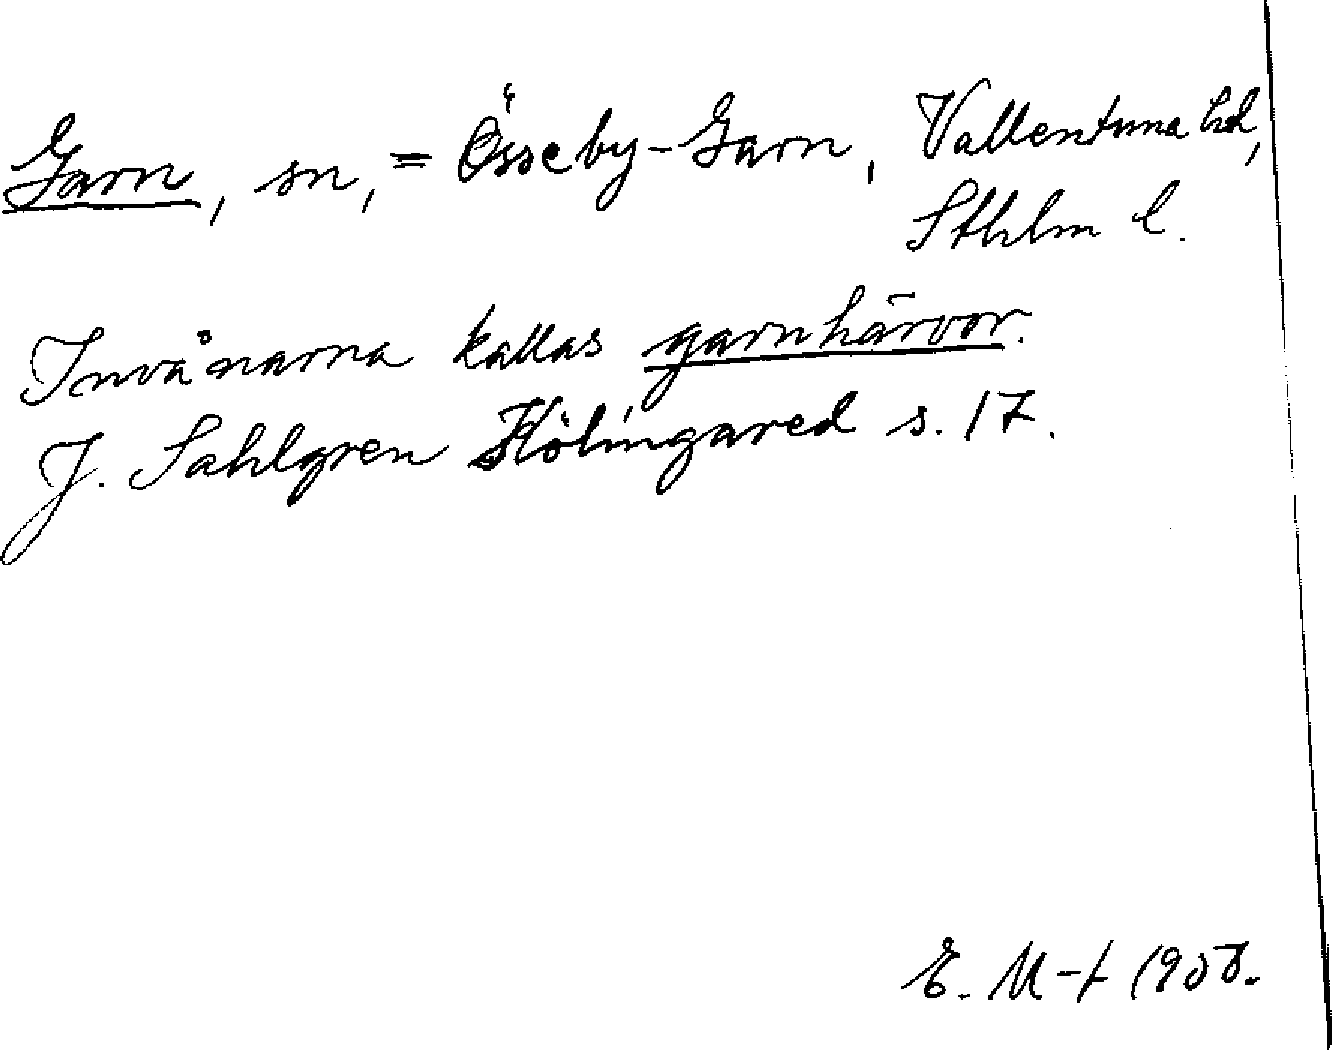 Garn, sn, = Össeby-Garn, Vallentuna hd,
Sthlm l.
Invånarna kallas garnhärvor.
J. Sahlgren Hölingared s. 17.
E. M-t